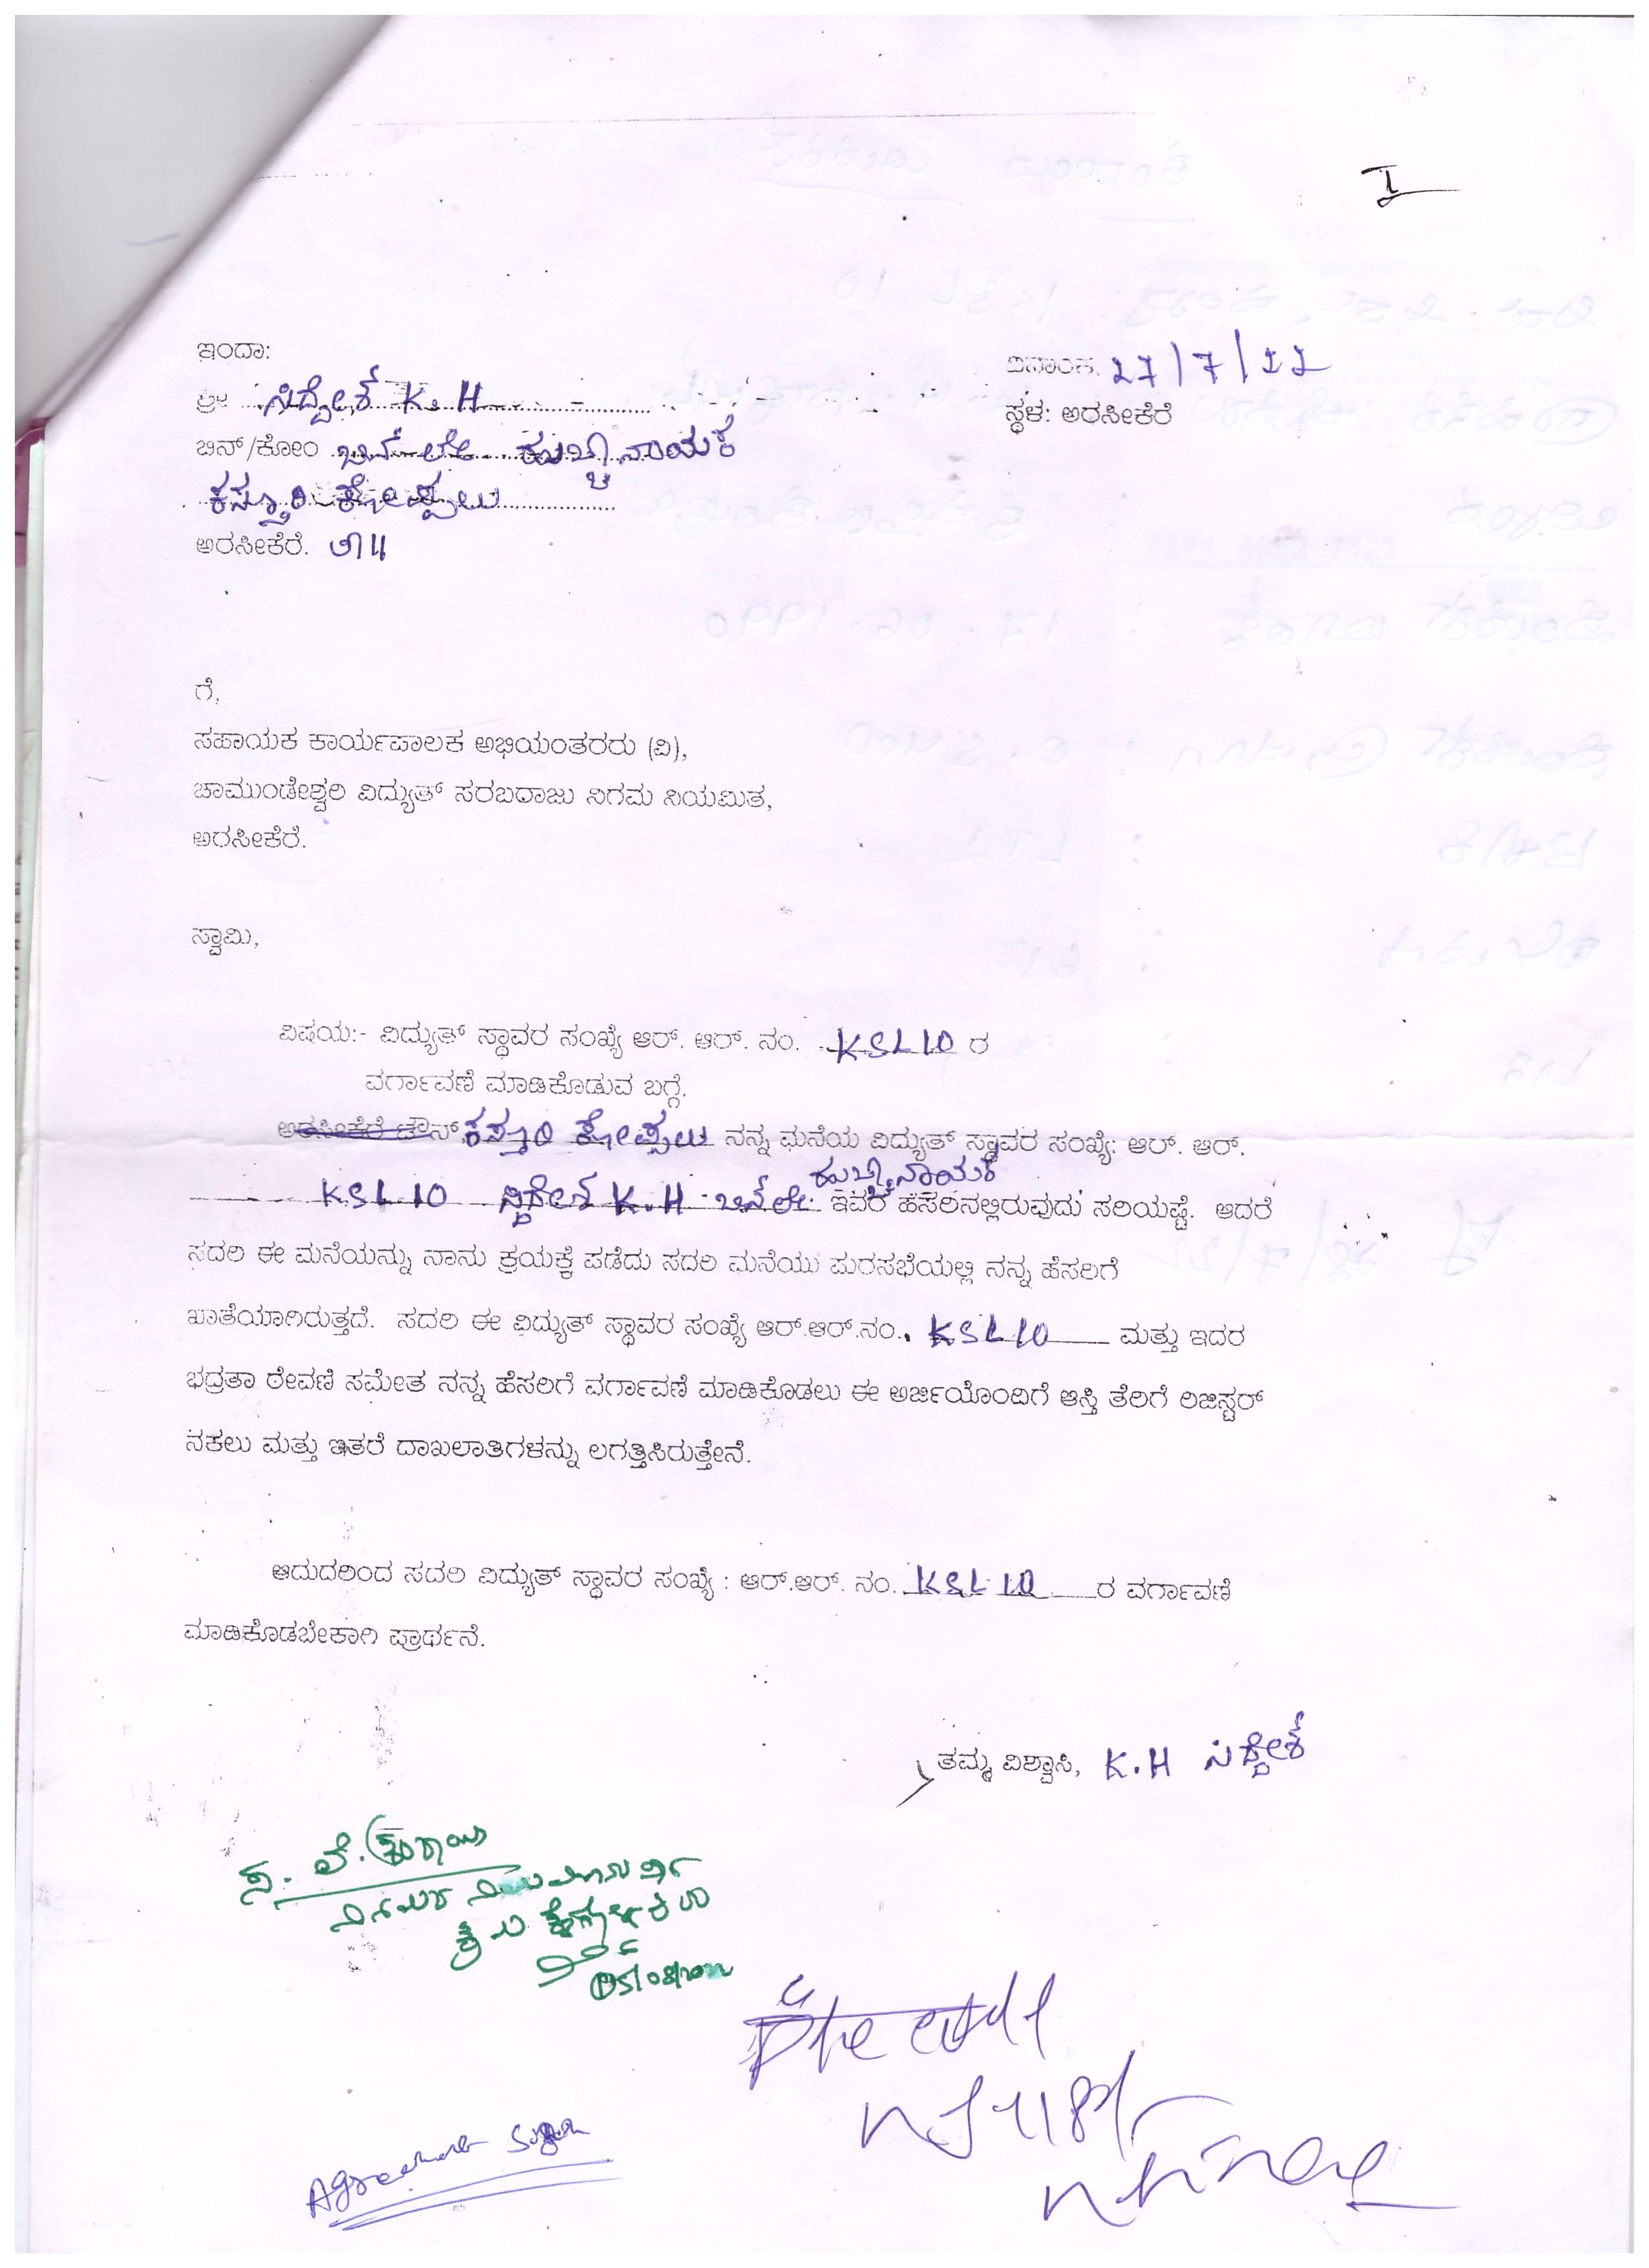 I
ಇಂದಾ:
ದಿನಾಂಕ: 27/7/22
ಶ್ರೀ ಸಿದ್ದೇಶ್ K. H
ಸ್ಥಳ: ಅರಸೀಕೆರೆ
ಬಿನ್/ಕೋಂ ಬಿನ್ ಲೇ ಹುಚ್ಚಿನಾಯಕ
ಕಸ್ತೂರಿ ಕೋಪ್ಪಲು
ಅರಸೀಕೆರೆ. ತಾ||
ಗೆ,
ಸಹಾಯಕ ಕಾರ್ಯಪಾಲಕ ಅಭಿಯಂತರರು (ವಿ),
ಚಾಮುಂಡೇಶ್ವರಿ ವಿದ್ಯುತ್ ಸರಬರಾಜು ನಿಗಮ ನಿಯಮಿತ,
ಅರಸೀಕೆರೆ.
ಸ್ವಾಮಿ,
ವಿಷಯ:- ವಿದ್ಯುತ್ ಸ್ಥಾವರ ಸಂಖ್ಯೆ ಆರ್. ಆರ್. ನಂ. KSL10 ರ
ವರ್ಗಾವಣೆ ಮಾಡಿಕೊಡುವ ಬಗ್ಗೆ.
ಅರಸೀಕೆರೆ ಟೌನ್, ಕಸ್ತೂರಿ ಕೋಪ್ಪಲು ನನ್ನ ಮನೆಯ ವಿದ್ಯುತ್ ಸ್ಥಾವರ ಸಂಖ್ಯೆ: ಆರ್. ಆರ್.
KSL10 ಸಿದ್ದೇಶ್ K.H ಬಿನ್ ಲೇ ಹುಚ್ಚಿನಾಯಕ ಇವರ ಹೆಸರಿನಲ್ಲಿರುವುದು ಸರಿಯಷ್ಟೆ. ಆದರೆ
ಸದರಿ ಈ ಮನೆಯನ್ನು ನಾನು ಕ್ರಯಕ್ಕೆ ಪಡೆದು ಸದರಿ ಮನೆಯು ಪುರಸಭೆಯಲ್ಲಿ ನನ್ನ ಹೆಸರಿಗೆ
ಖಾತೆಯಾಗಿರುತ್ತದೆ. ಸದರಿ ಈ ವಿದ್ಯುತ್ ಸ್ಥಾವರ ಸಂಖ್ಯೆ ಆರ್.ಆರ್.ನಂ. KSL10 ಮತ್ತು ಇದರ
ಭದ್ರತಾ ಠೇವಣಿ ಸಮೇತ ನನ್ನ ಹೆಸರಿಗೆ ವರ್ಗಾವಣೆ ಮಾಡಿಕೊಡಲು ಈ ಅರ್ಜಿಯೊಂದಿಗೆ ಆಸ್ತಿ ತೆರಿಗೆ ರಿಜಿಸ್ಟರ್
ನಕಲು ಮತ್ತು ಇತರೆ ದಾಖಲಾತಿಗಳನ್ನು ಲಗತ್ತಿಸಿರುತ್ತೇನೆ.
ಆದುದರಿಂದ ಸದರಿ ವಿದ್ಯುತ್ ಸ್ಥಾವರ ಸಂಖ್ಯೆ : ಆರ್.ಆರ್. ನಂ. KSL10 ರ ವರ್ಗಾವಣೆ
ಮಾಡಿಕೊಡಬೇಕಾಗಿ ಪ್ರಾರ್ಥನೆ.
ತಮ್ಮ ವಿಶ್ವಾಸಿ, K.H ಸಿದ್ದೇಶ್
Agreement